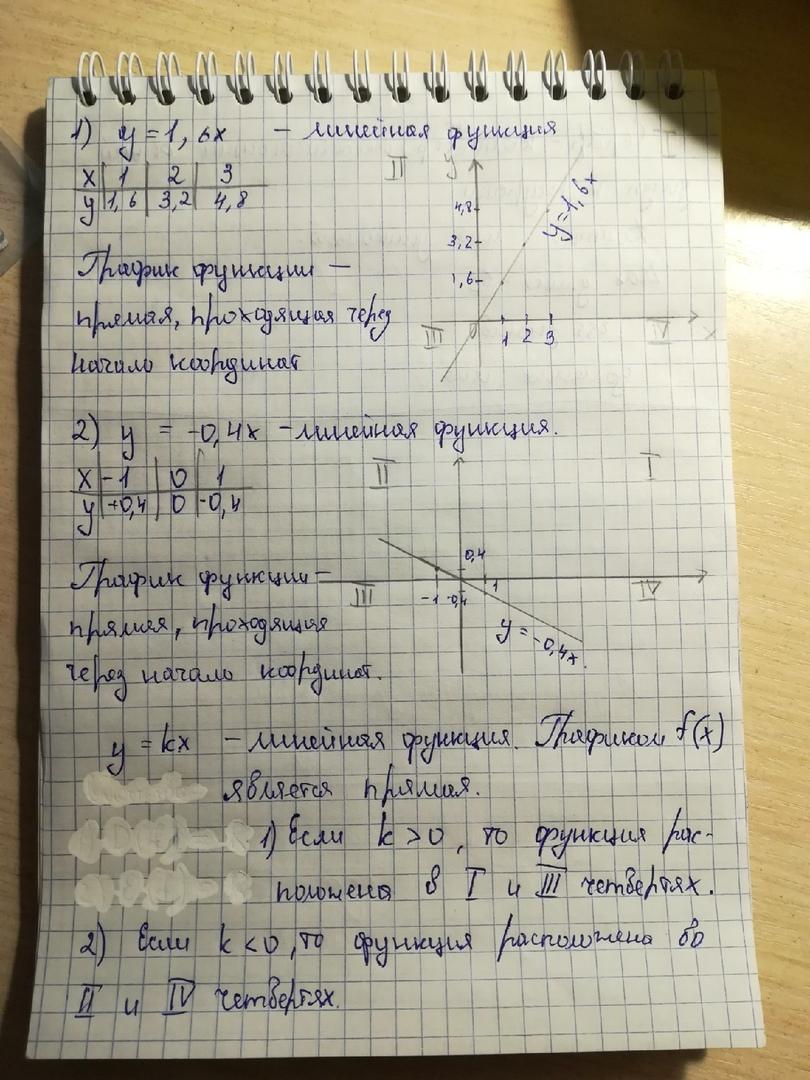 1) y = 1,6x – линейная функция
x 1 2 3
y 1,6 3,2 4,8
II y I
4,8
3,2
1,6
y=1,6x
График функции –
прямая, проходящая через
начало координат
III 0 1 2 3 IV x
2) y = -0,4x – линейная функция.
x -1 0 1
y +0,4 0 -0,4
II I
0,4
График функции –
III -1 -0,4 1 IV
прямая, проходящая
y = -0,4x.
через начало координат.
y = kx – линейная функция. Графиком f(x)
является прямая.
1) Если k > 0, то функция рас-
положена в I и III четвертях.
2) Если k < 0, то функция расположена во
II и IV четвертях.